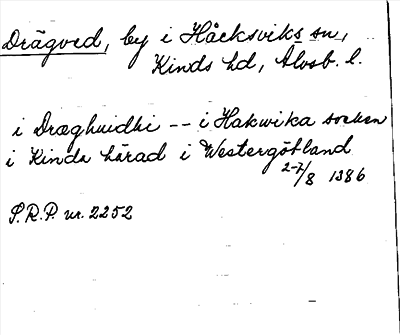 Drägved, by i Håcksviks sn,
Kinds hd, Älvsb. l.
i Dræghuidhi -- i Hakwika socken
i Kinda härad i Westergötland
2-7/8 1386
S.R.P. nr. 2252